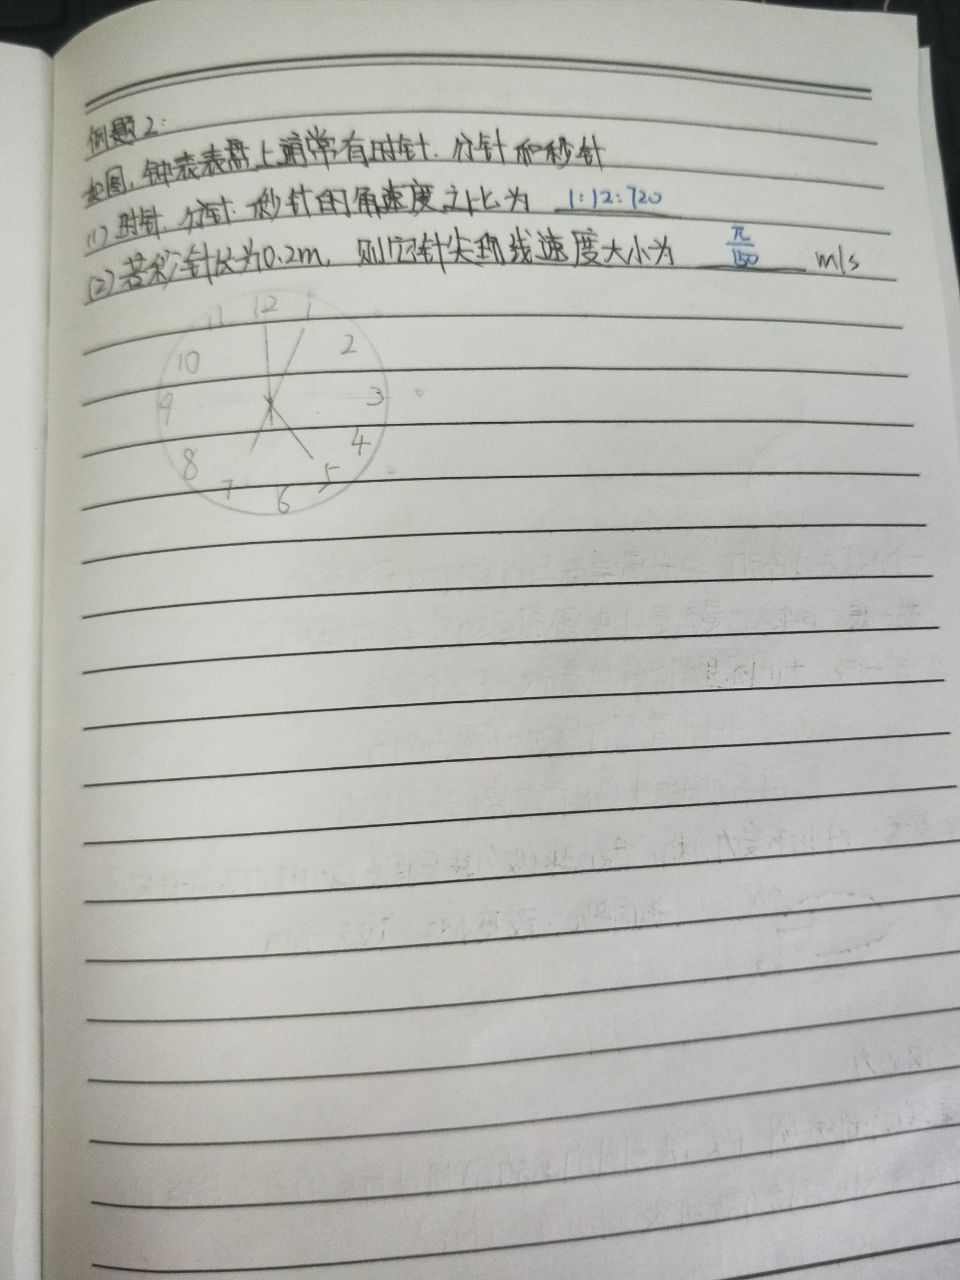 例题2:
如图,钟表表盘上通常有时针、分针和秒针
(1)时针、分针、秒针的角速度之比为 1:12:720
(2)若秒针长为0.2m,则它针尖的线速度大小为 π/150 m/s
11 12 1
10 2
9 3
8 4
7 6 5